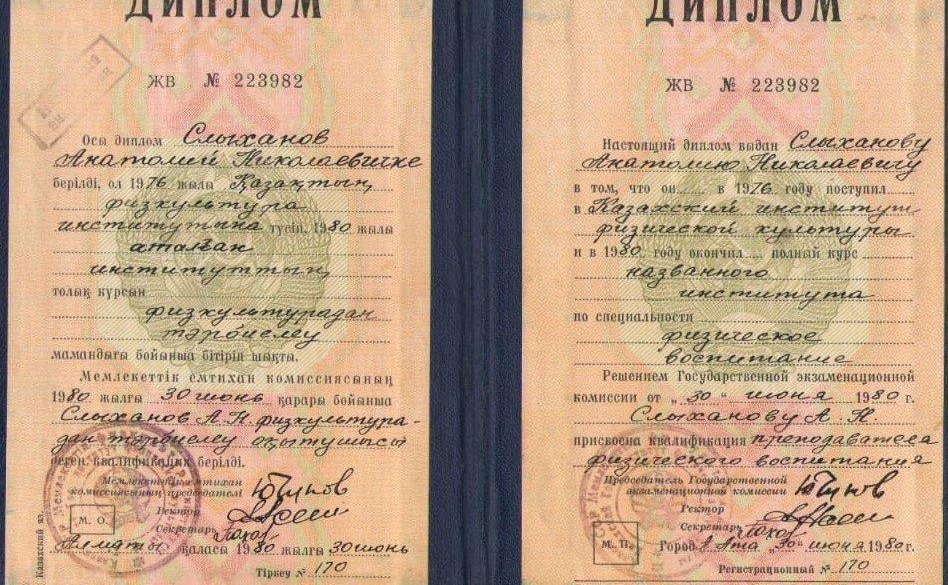 ДИПЛОМ
ЖВ № 223982
Осы диплом Слыханов
Анатолий Николаевичке
берілді, ол 1976 жылы Қазақтың
физкультура
институтына түсіп, 1980 жылы
аталған
институттың
толық курсын
физкультурадан
тәрбиелеу
мамандығы бойынша бітіріп шықты.
Мемлекеттік емтихан комиссиясының
1980 жылғы 30 июнь қарары бойынша
Слыханов А.Н. физкультура-
дан тәрбиелеу оқытушысы
деген квалификация берілді.
Мемлекеттік емтихан
комиссиясының председателі
Ректор
Секретарь
М. О.
Алматы қаласы 1980 жылғы 30 июнь
Тіркеу № 170
Казахский яз.
ДИПЛОМ
ЖВ № 223982
Настоящий диплом выдан Слыханову
Анатолию Николаевичу
в том, что он в 1976 году поступил
в Казахский институт
физической культуры
и в 1980 году окончил полный курс
названного
института
по специальности
физическое
воспитание
Решением Государственной экзаменационной
комиссии от „30“ июня 1980 г.
Слыханову А. Н
присвоена квалификация преподавателя
физического воспитания
Председатель Государственной
экзаменационной комиссии
Ректор
Секретарь
М. П.
Город А Ата „30“ июня 1980 г.
Регистрационный № 170